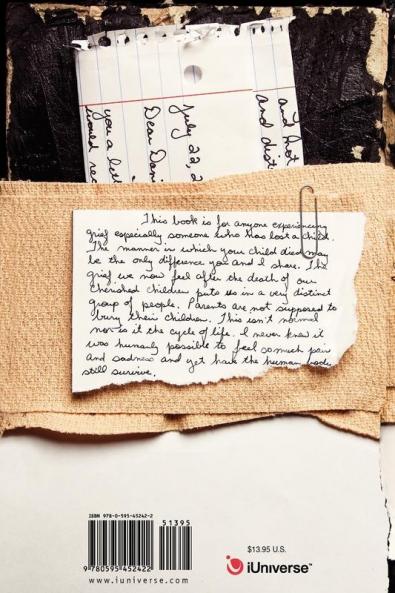 July 22, 2
Dear Dani
you a let
would rec
and not
and dist
This book is for anyone experiencing
grief especially someone who has lost a child.
The manner in which your child died may
be the only difference you and I share. The
grief we now feel after the death of our
cherished children puts us in a very distinct
group of people. Parents are not supposed to
bury their children. This isn't normal
nor is it the cycle of life. I never knew it
was humanly possible to feel so much pain
and sadness and yet have the human body
still survive.
ISBN 978-0-595-45242-2
51395
9 780595 452422
www.iuniverse.com
$13.95 U.S.
iUniverse™